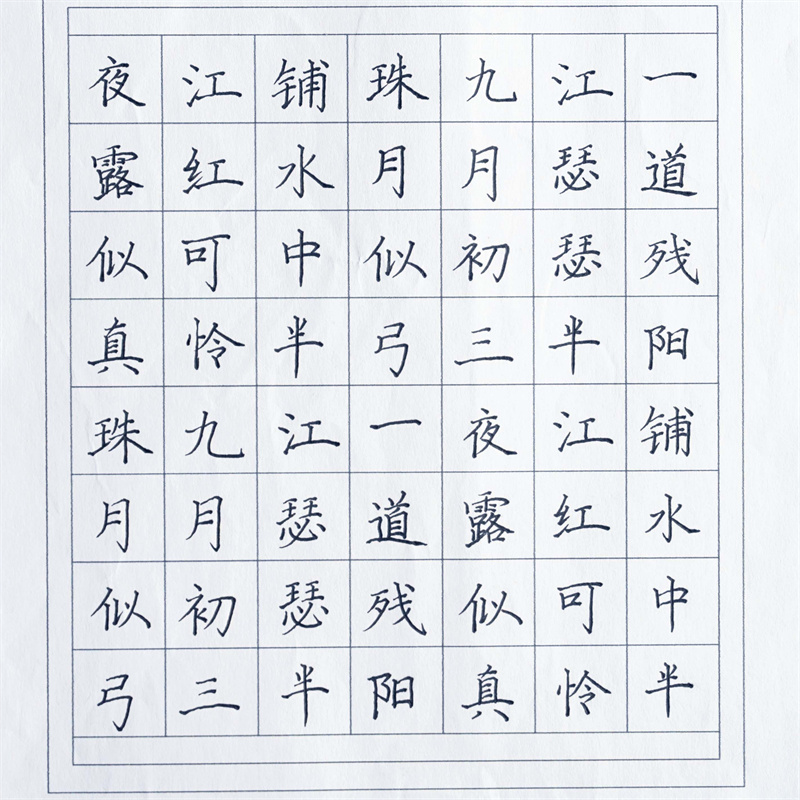 一道残阳铺水中半
江瑟瑟半江红可怜
九月初三夜露似真
珠月似弓一道残阳
铺水中半江瑟瑟半
江红可怜九月初三
夜露似真珠月似弓